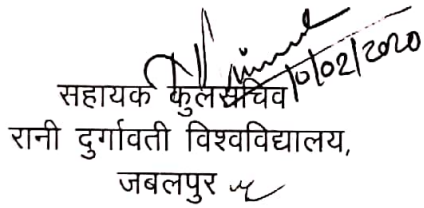 10/02/2020
सहायक कुलसचिव
रानी दुर्गावती विश्वविद्यालय,
जबलपुर